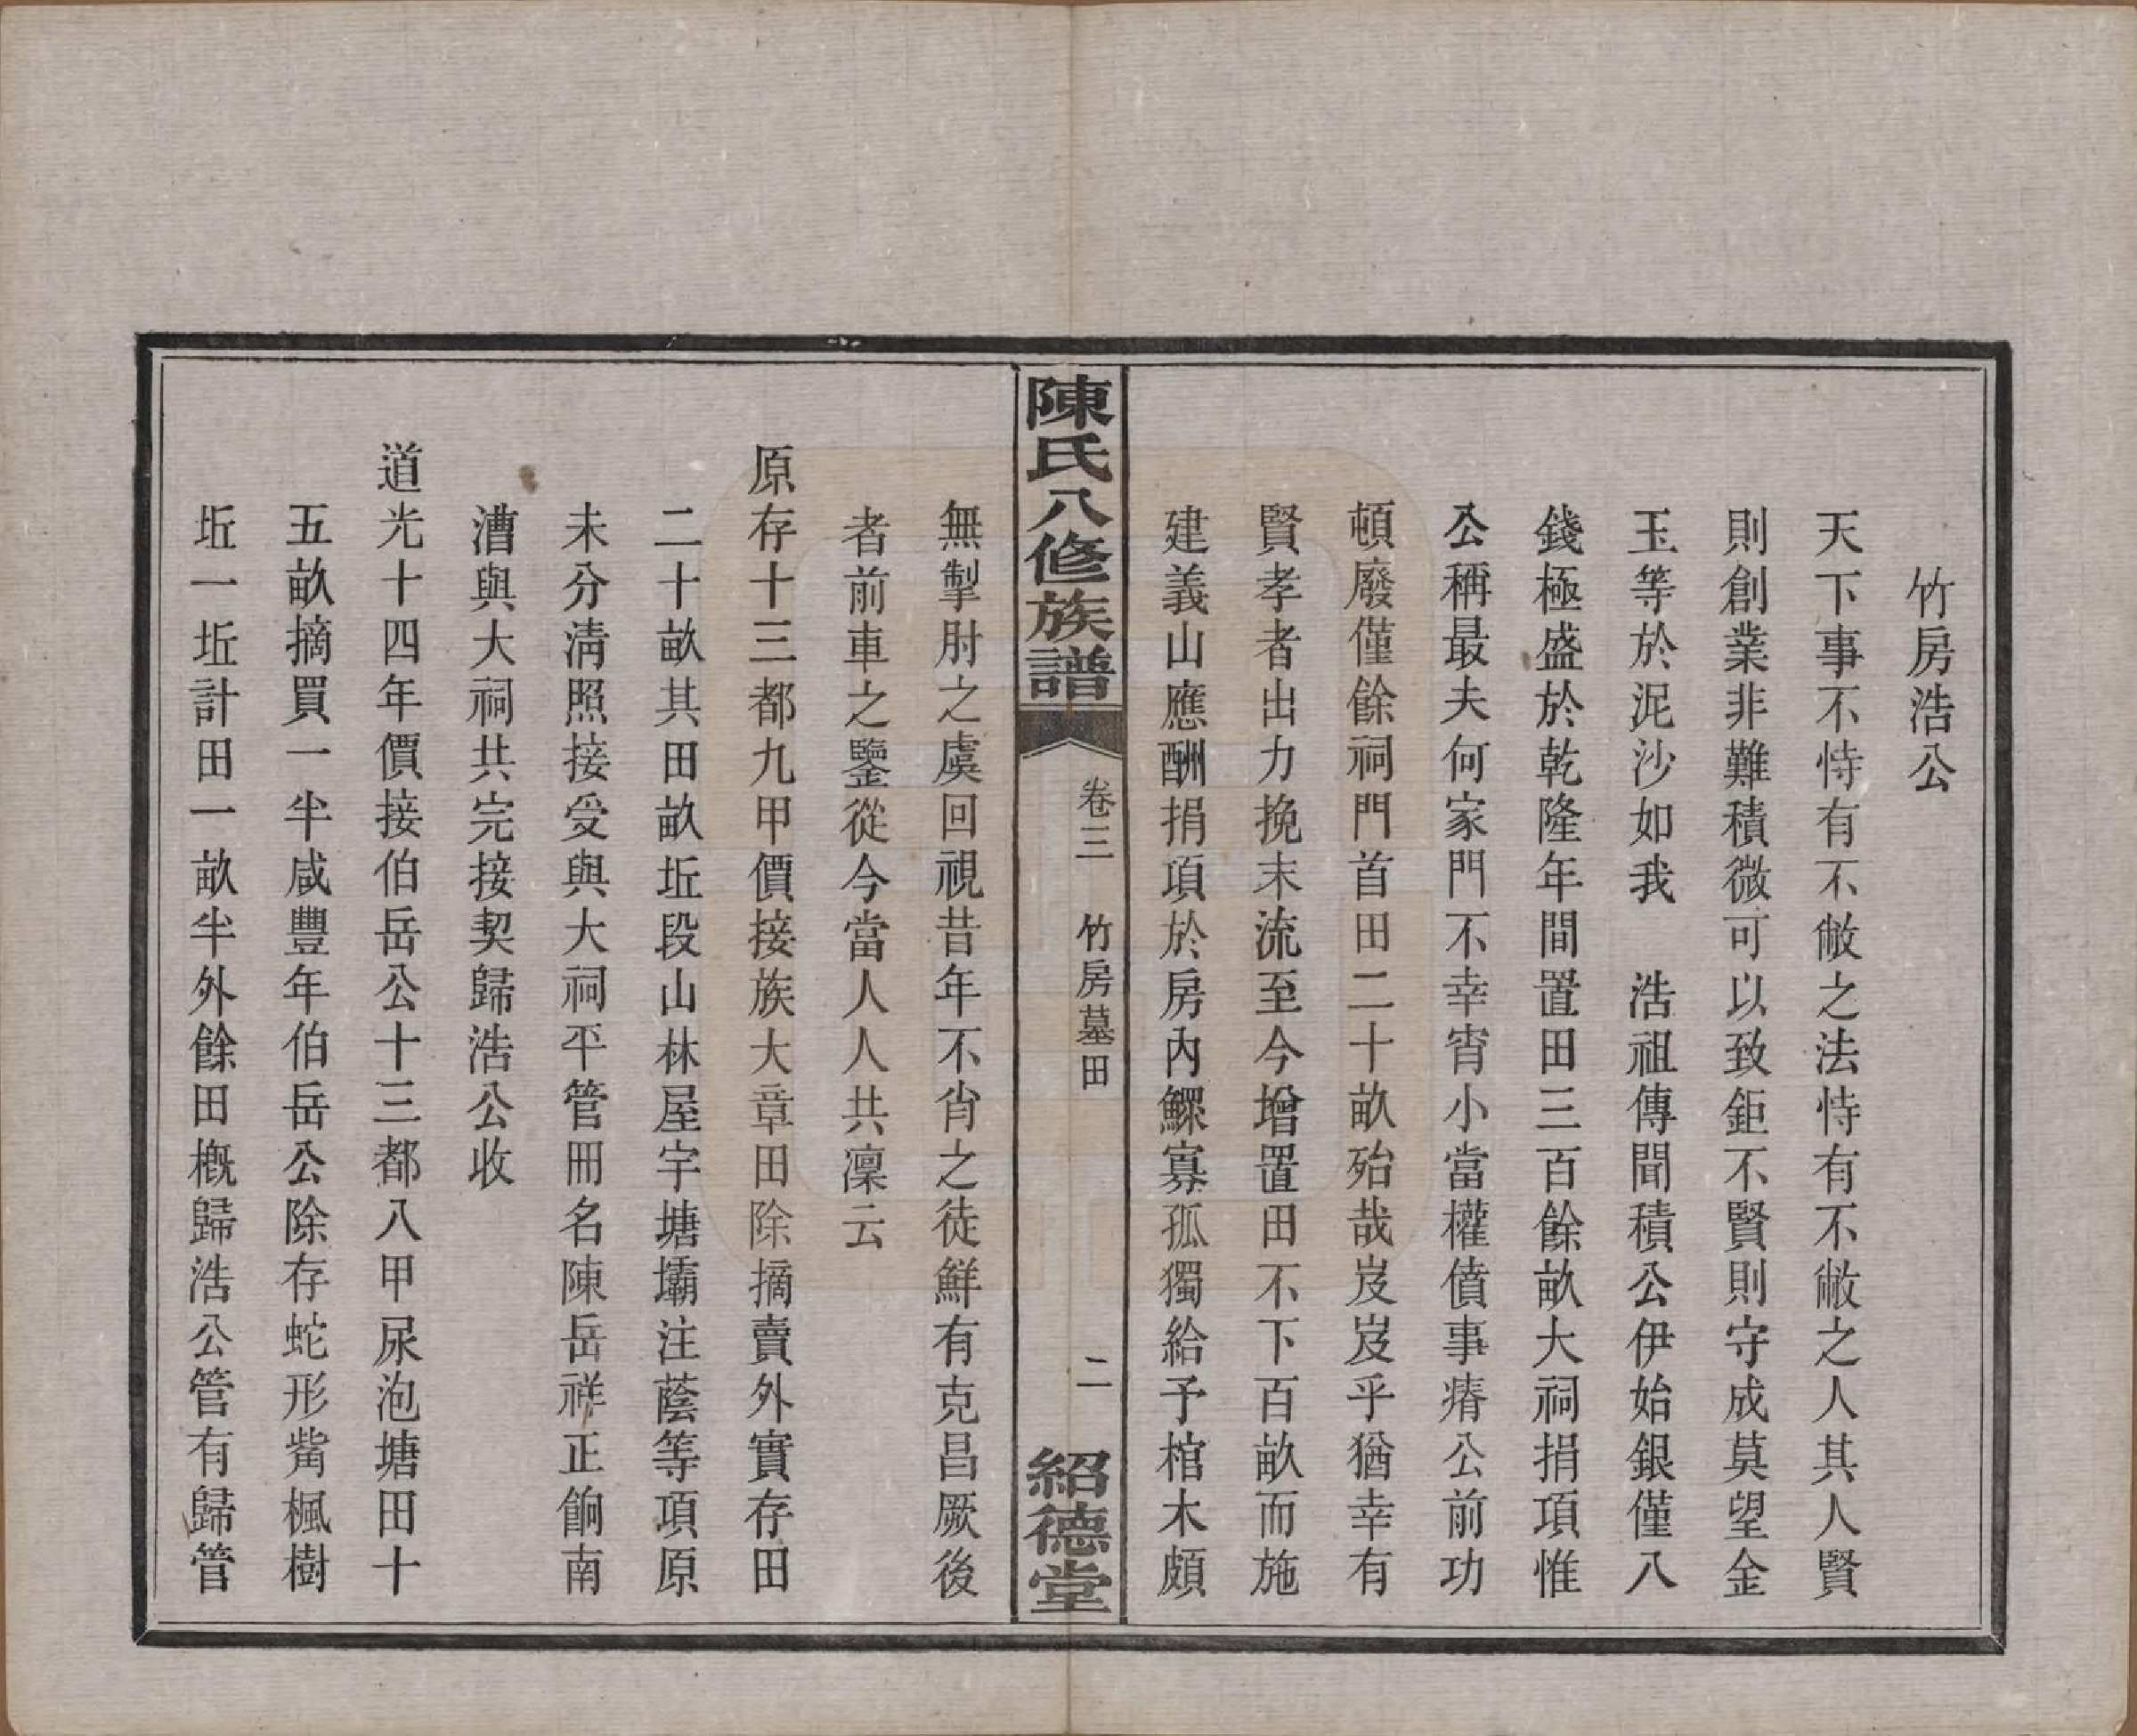 竹房浩公
天下事不恃有不敝之法恃有不敝之人其人賢
則創業非難積微可以致鉅不賢則守成莫望金
玉等於泥沙如我　浩祖傳聞積公伊始銀僅八
錢極盛於乾隆年間置田三百餘畝大祠捐項惟
公稱最夫何家門不幸宵小當權僨事瘠公前功
頓廢僅餘祠門首田二十畝殆哉岌岌乎猶幸有
賢孝者出力挽末流至今增置田不下百畝而施
建義山應酬捐項於房內鰥寡孤獨給予棺木頗
陳氏八修族譜
卷三　竹房墓田
二
紹德堂
無掣肘之虞回視昔年不肖之徒鮮有克昌厥後
者前車之鑒從今當人人共凜云
原存十三都九甲價接族大章田除摘賣外實存田
二十畝其田畝坵段山林屋宇塘壩注蔭等項原
未分淸照接受與大祠平管冊名陳岳祥正餉南
漕與大祠共完接契歸浩公收
道光十四年價接伯岳公十三都八甲尿泡塘田十
五畝摘買一半咸豐年伯岳公除存蛇形嵛楓樹
坵一坵計田一畝半外餘田概歸浩公管有歸管